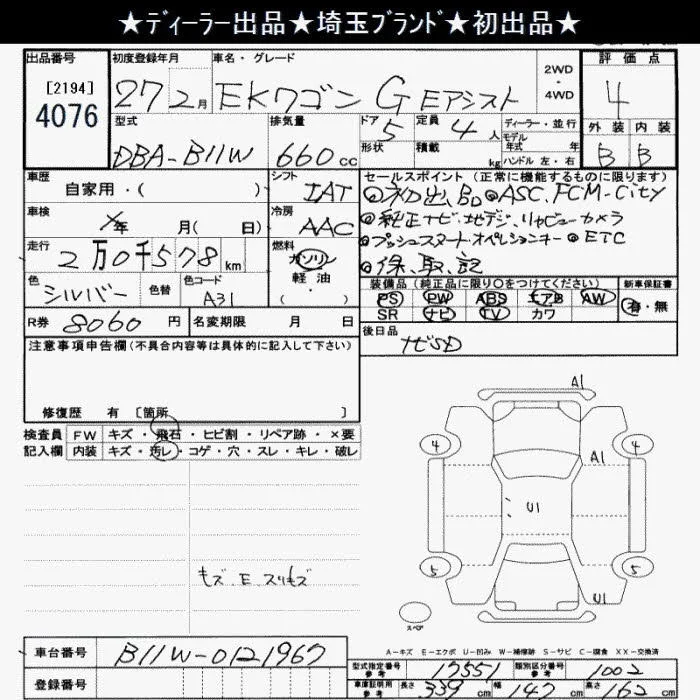 ★ディーラー出品★埼玉ブランド★初出品★
出品番号 初度登録年月 車名・グレード 2WD・4WD 評価点
[2194]
4076
27 2月 EKワゴン G Eアシスト 4
型式 排気量 ドア 5 定員 4人 ディーラー・並行 外装 内装
モデル年式 年
DBA-B11W 660cc 形状 積載 kg ハンドル 左・右 B B
車歴 シフト セールスポイント(正常に機能するものに限ります)
自家用・( ) IAT ◎初出品 ◎ASC, FCM-City
車検 年 月( 日) 冷房 AAC ◎純正ナビ、地デジ、リヤビューカメラ
走行 燃料 ◎プッシュスタート・オペレーションキー ◎ETC
2万0千578km ガソリン 軽油・( ) ◎保、取、記
色 色替 色コード 装備品(純正品に限り○をつけてください) 新車保証書
シルバー A31 PS PW ABS エアB AW 有・無
SR ナビ TV カワ
R券 8060円 名変期限 月 日 後日品
注意事項申告欄(不具合内容等は具体的に記入して下さい) ナビSD
修復歴 有 [箇所 ]
検査員 FW キズ・飛石・ヒビ割・リペア跡・×要
記入欄 内装 キズ・汚レ・コゲ・穴・スレ・キレ・破レ
A1
4 4
A1
U1
キズ、E、スリキズ
5 5
U1
スペア
A-キズ E-エクボ U-凹み W-補修跡 S-サビ C-腐食 XX-交換済
車台番号 B11W-0121967
型式指定番号 参考 17551 類別区分番号 参考 1002
登録番号
車庫証明用 参考 長さ 339cm 幅 147cm 高さ 162cm